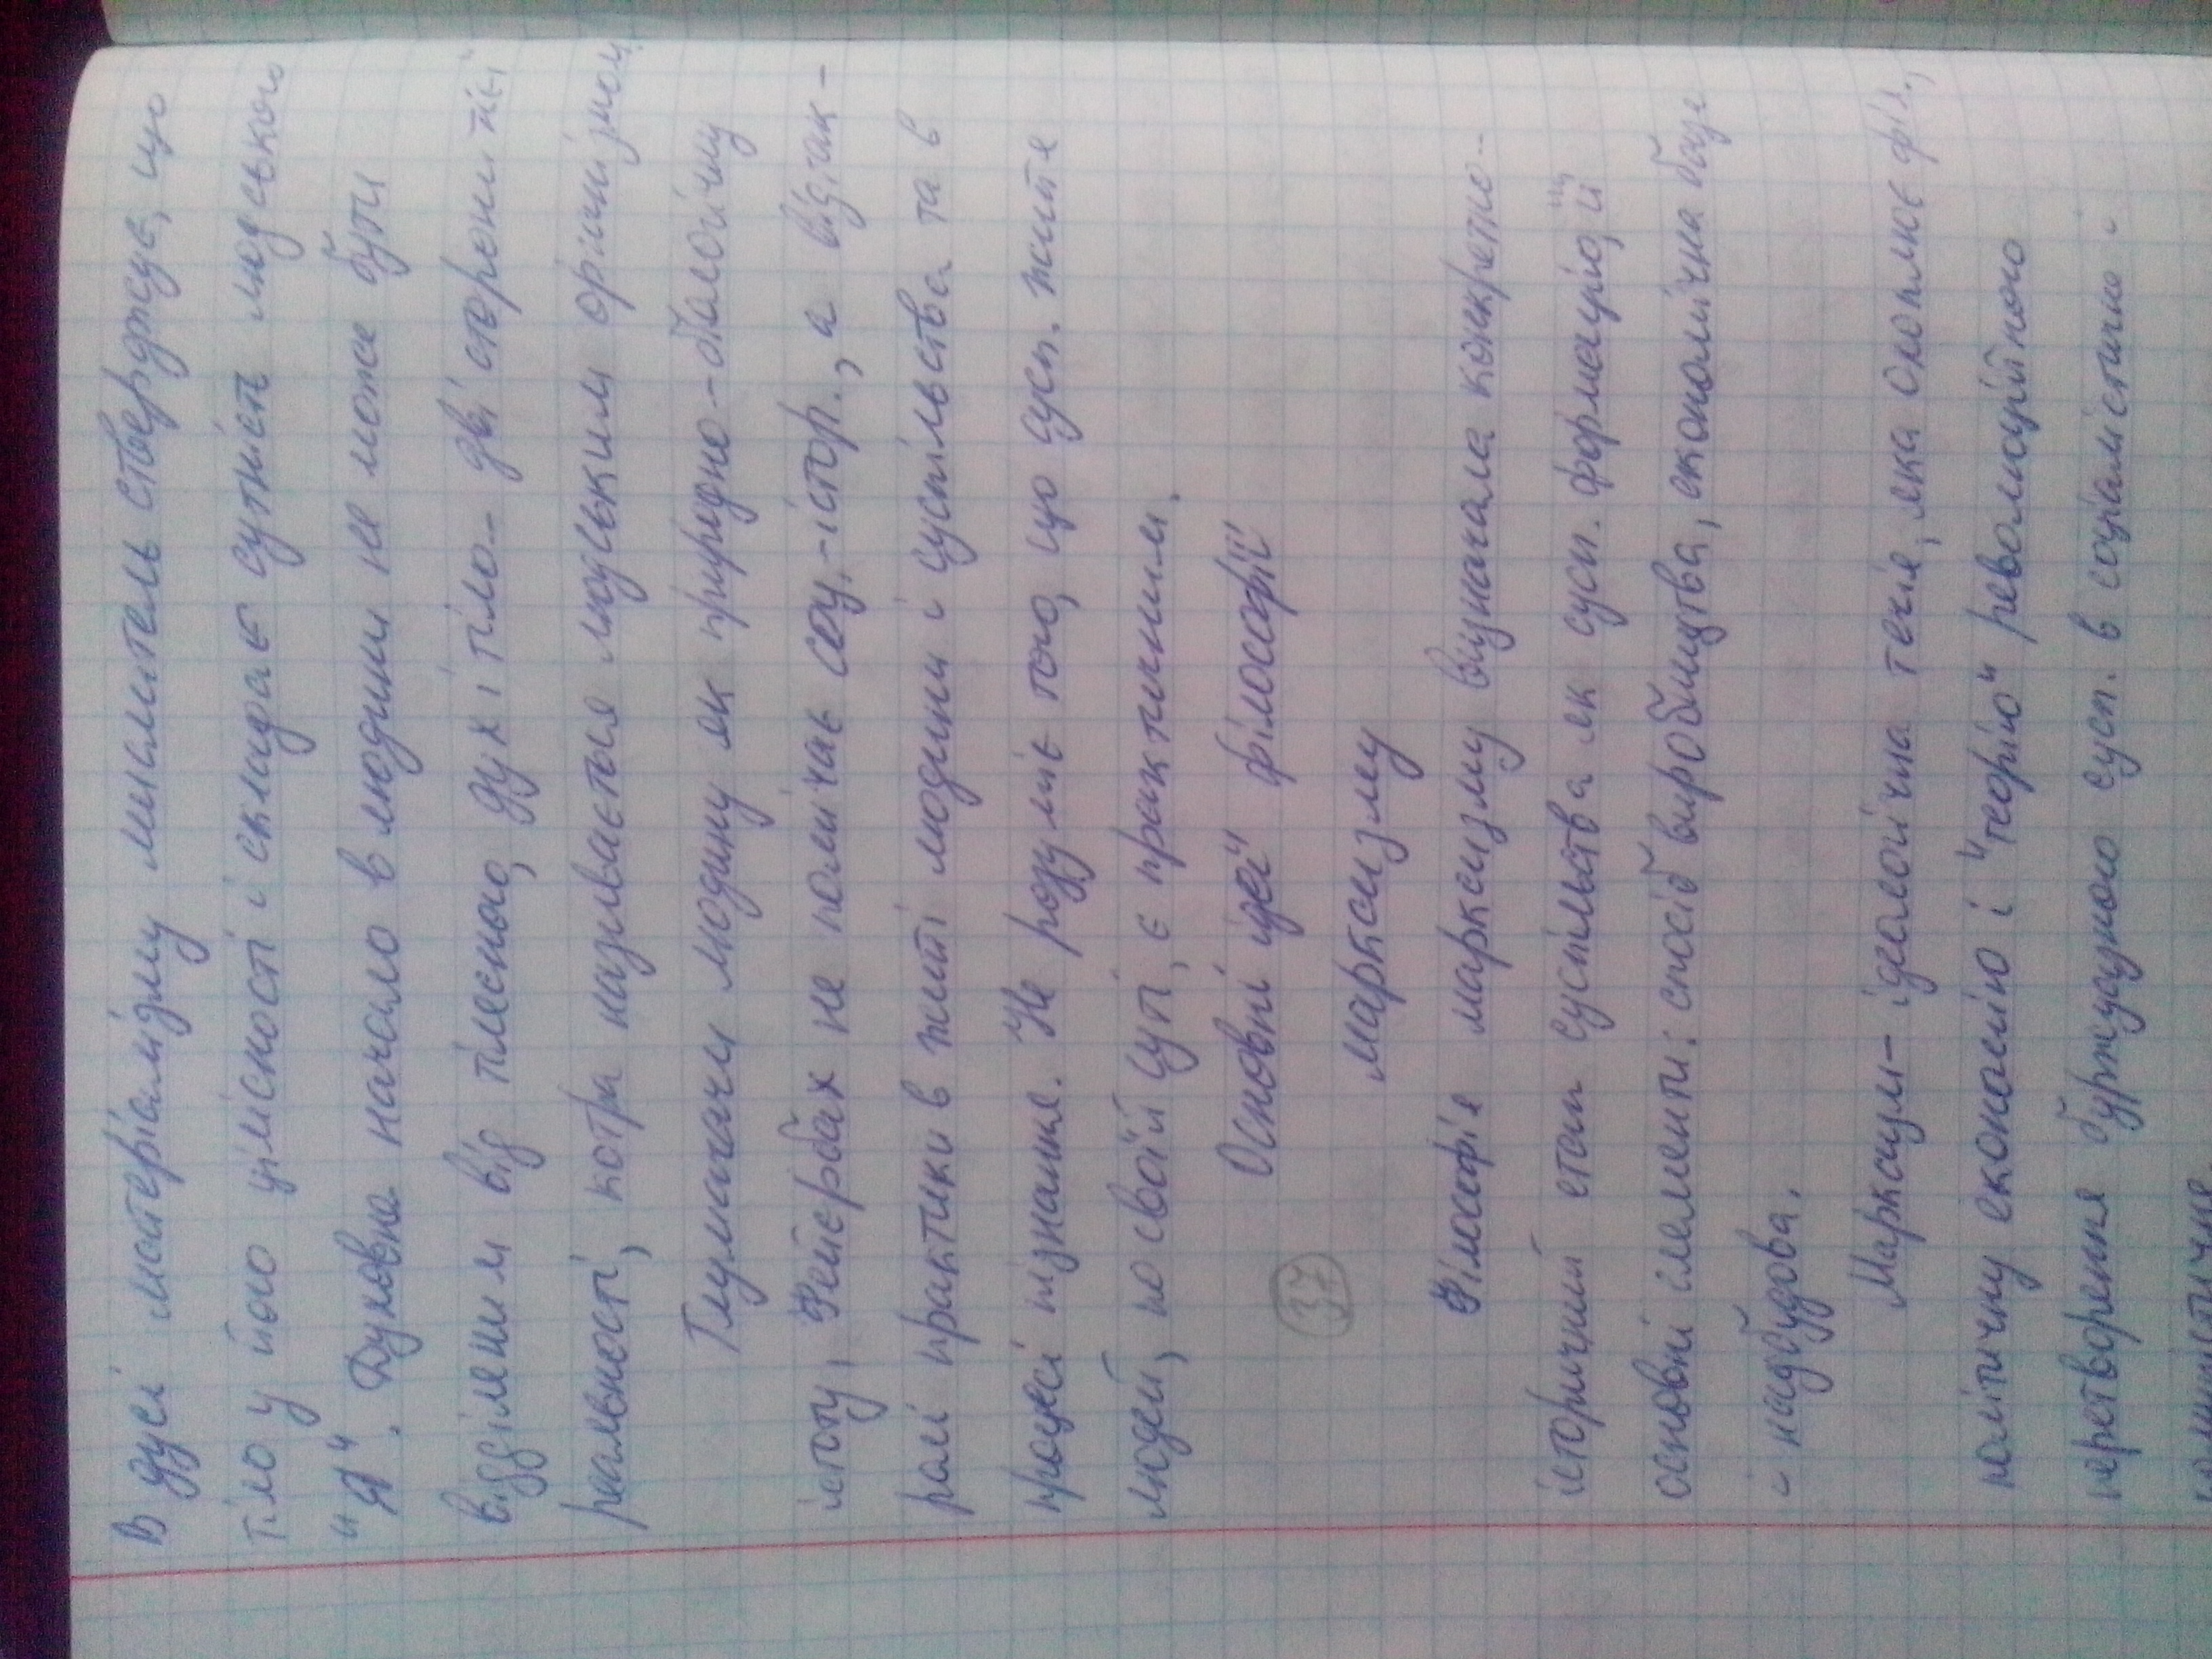 В дусі матеріалізму мислитель стверджує, що
тіло у його цілісності і складає сутність людського
"Я". Духовне начало в людини не може бути
відділеним від тілесного, дух і тіло – дві сторони тієї
реальності, котра називається людським організмом.
Тлумачачи людину як природно-біологічну
істоту, Фейєрбах не помічає соц.-істор., а відтак –
ролі практики в житті людини і суспільства та в
процесі пізнання. Не розуміє того, що сусп. життя
людей, по своїй суті, є практичним.
37 Основні ідеї філософії
марксизму
Філософія марксизму визначала конкретно-
історичний етап суспільства як сусп. формацію, її
основні елементи: спосіб виробництва, економічна база
і надбудова.
Марксизм – ідеологічна течія, яка охоплює філ.,
політичну економію і "теорію" революційного
перетворення буржуазного сусп. в соціалістичне і
комуністичне.